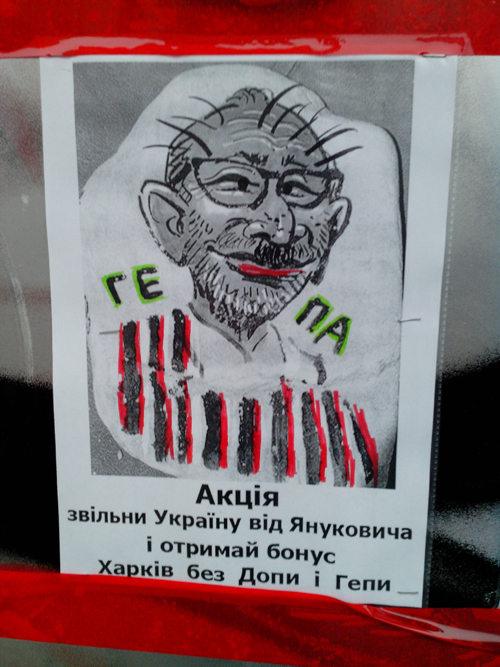 ГЕ
ПА
Акція
звільни Україну від Януковича
і отримай бонус
Харків без Допи і Гепи